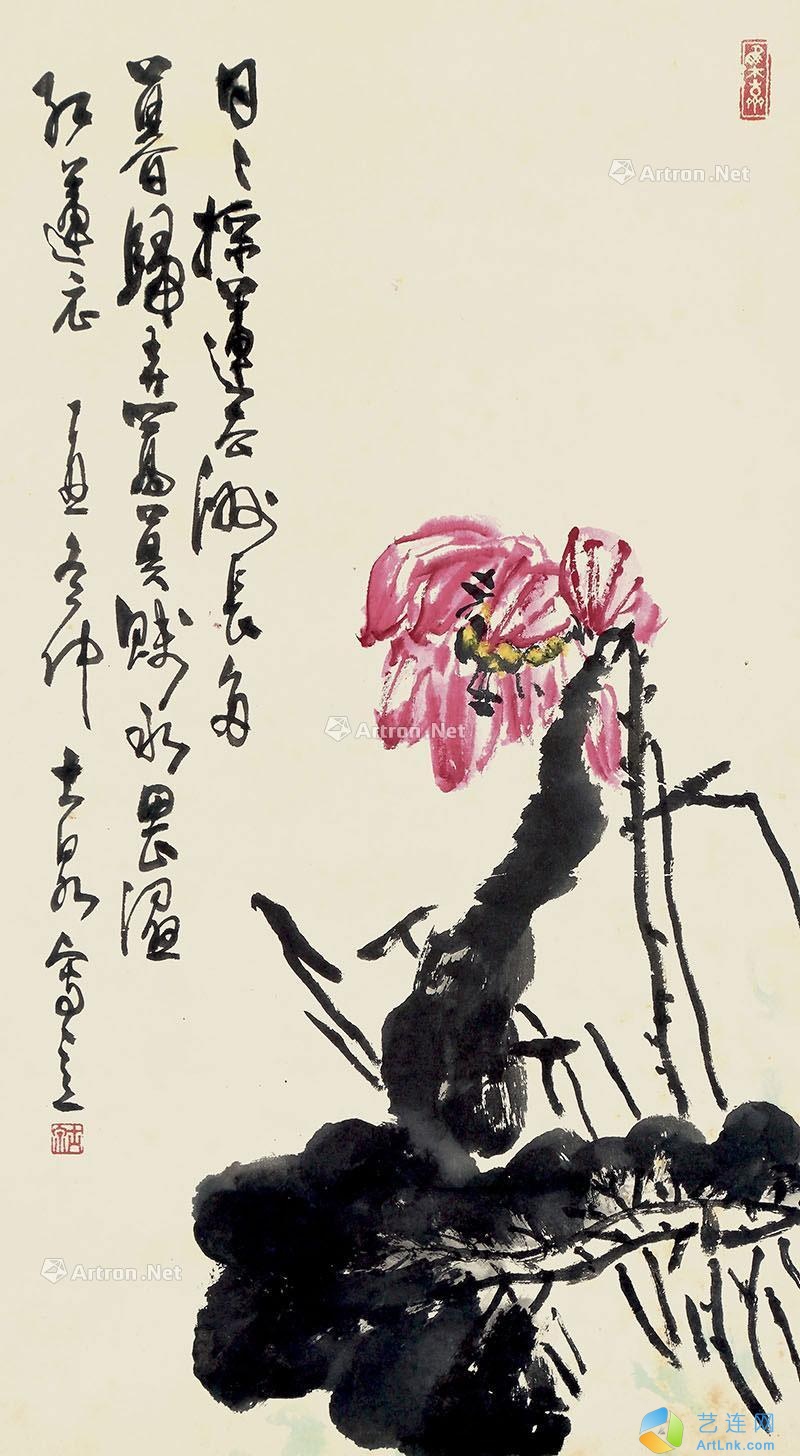 日々採蓮去洲長多
暮歸弄篙莫濺水畏溼
紅蓮衣 丁丑冬仲 古泉寫意
Artron.Net
Artron.Net
Artron.Net
艺连网
ArtLnk.com